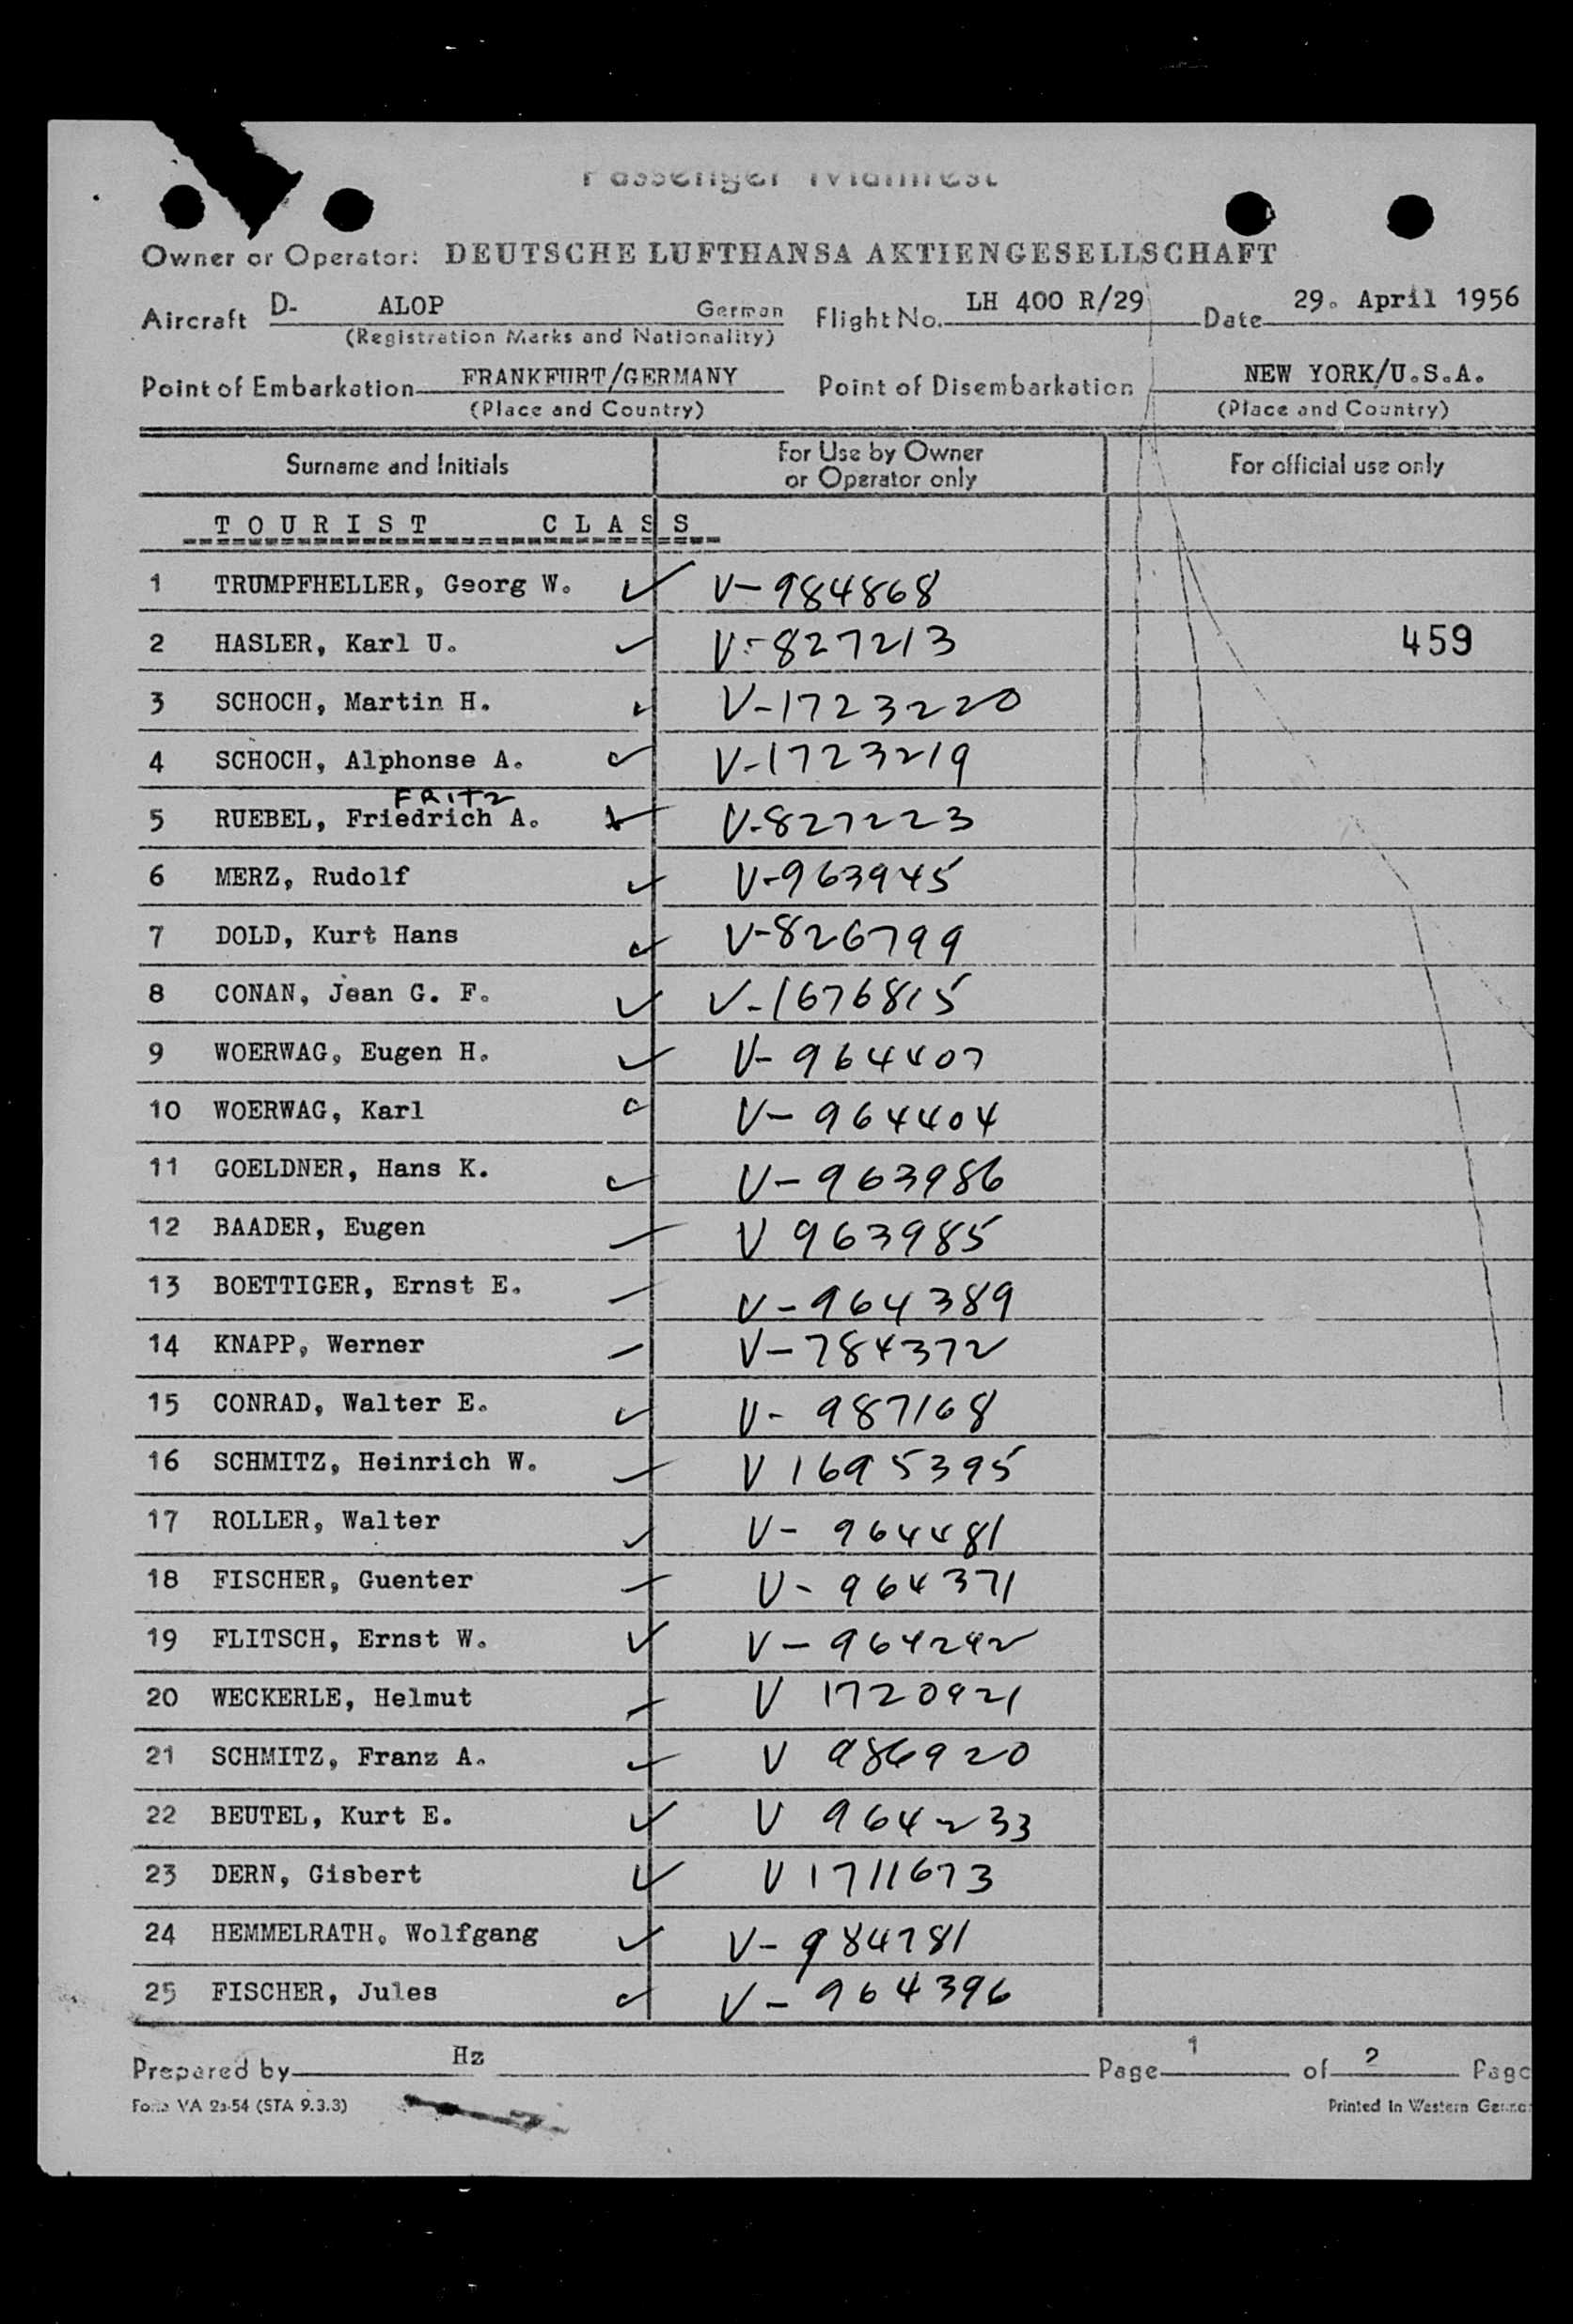 Passenger Manifest
Owner or Operator: DEUTSCHE LUFTHANSA AKTIENGESELLSCHAFT
Aircraft D- ALOP German Flight No. LH 400 R/29 Date 29. April 1956
(Registration Marks and Nationality)
Point of Embarkation FRANKFURT/GERMANY Point of Disembarkation NEW YORK/U.S.A.
(Place and Country) (Place and Country)
Surname and Initials For Use by Owner or Operator only For official use only
TOURIST CLASS
1 TRUMPFHELLER, Georg W. ✓ V-984868
2 HASLER, Karl U. ✓ V-827213 459
3 SCHOCH, Martin H. ✓ V-1723220
4 SCHOCH, Alphonse A. ✓ V-1723219
FRITZ
5 RUEBEL, Friedrich A. V-827223
6 MERZ, Rudolf ✓ V-963945
7 DOLD, Kurt Hans ✓ V-826799
8 CONAN, Jean G. F. ✓ V-1676815
9 WOERWAG, Eugen H. ✓ V-964407
10 WOERWAG, Karl V-964404
11 GOELDNER, Hans K. ✓ V-963986
12 BAADER, Eugen V 963985
13 BOETTIGER, Ernst E. V-964389
14 KNAPP, Werner V-784372
15 CONRAD, Walter E. ✓ V-987168
16 SCHMITZ, Heinrich W. V 1695395
17 ROLLER, Walter ✓ V-964481
18 FISCHER, Guenter V-964371
19 FLITSCH, Ernst W. ✓ V-964242
20 WECKERLE, Helmut V 1720921
21 SCHMITZ, Franz A. ✓ V 986920
22 BEUTEL, Kurt E. ✓ V 964233
23 DERN, Gisbert ✓ V 1711673
24 HEMMELRATH, Wolfgang ✓ V-984781
25 FISCHER, Jules ✓ V-964396
Prepared by Hz Page 1 of 2 Page
Form VA 2a-54 (STA 9.3.3) Printed in Western